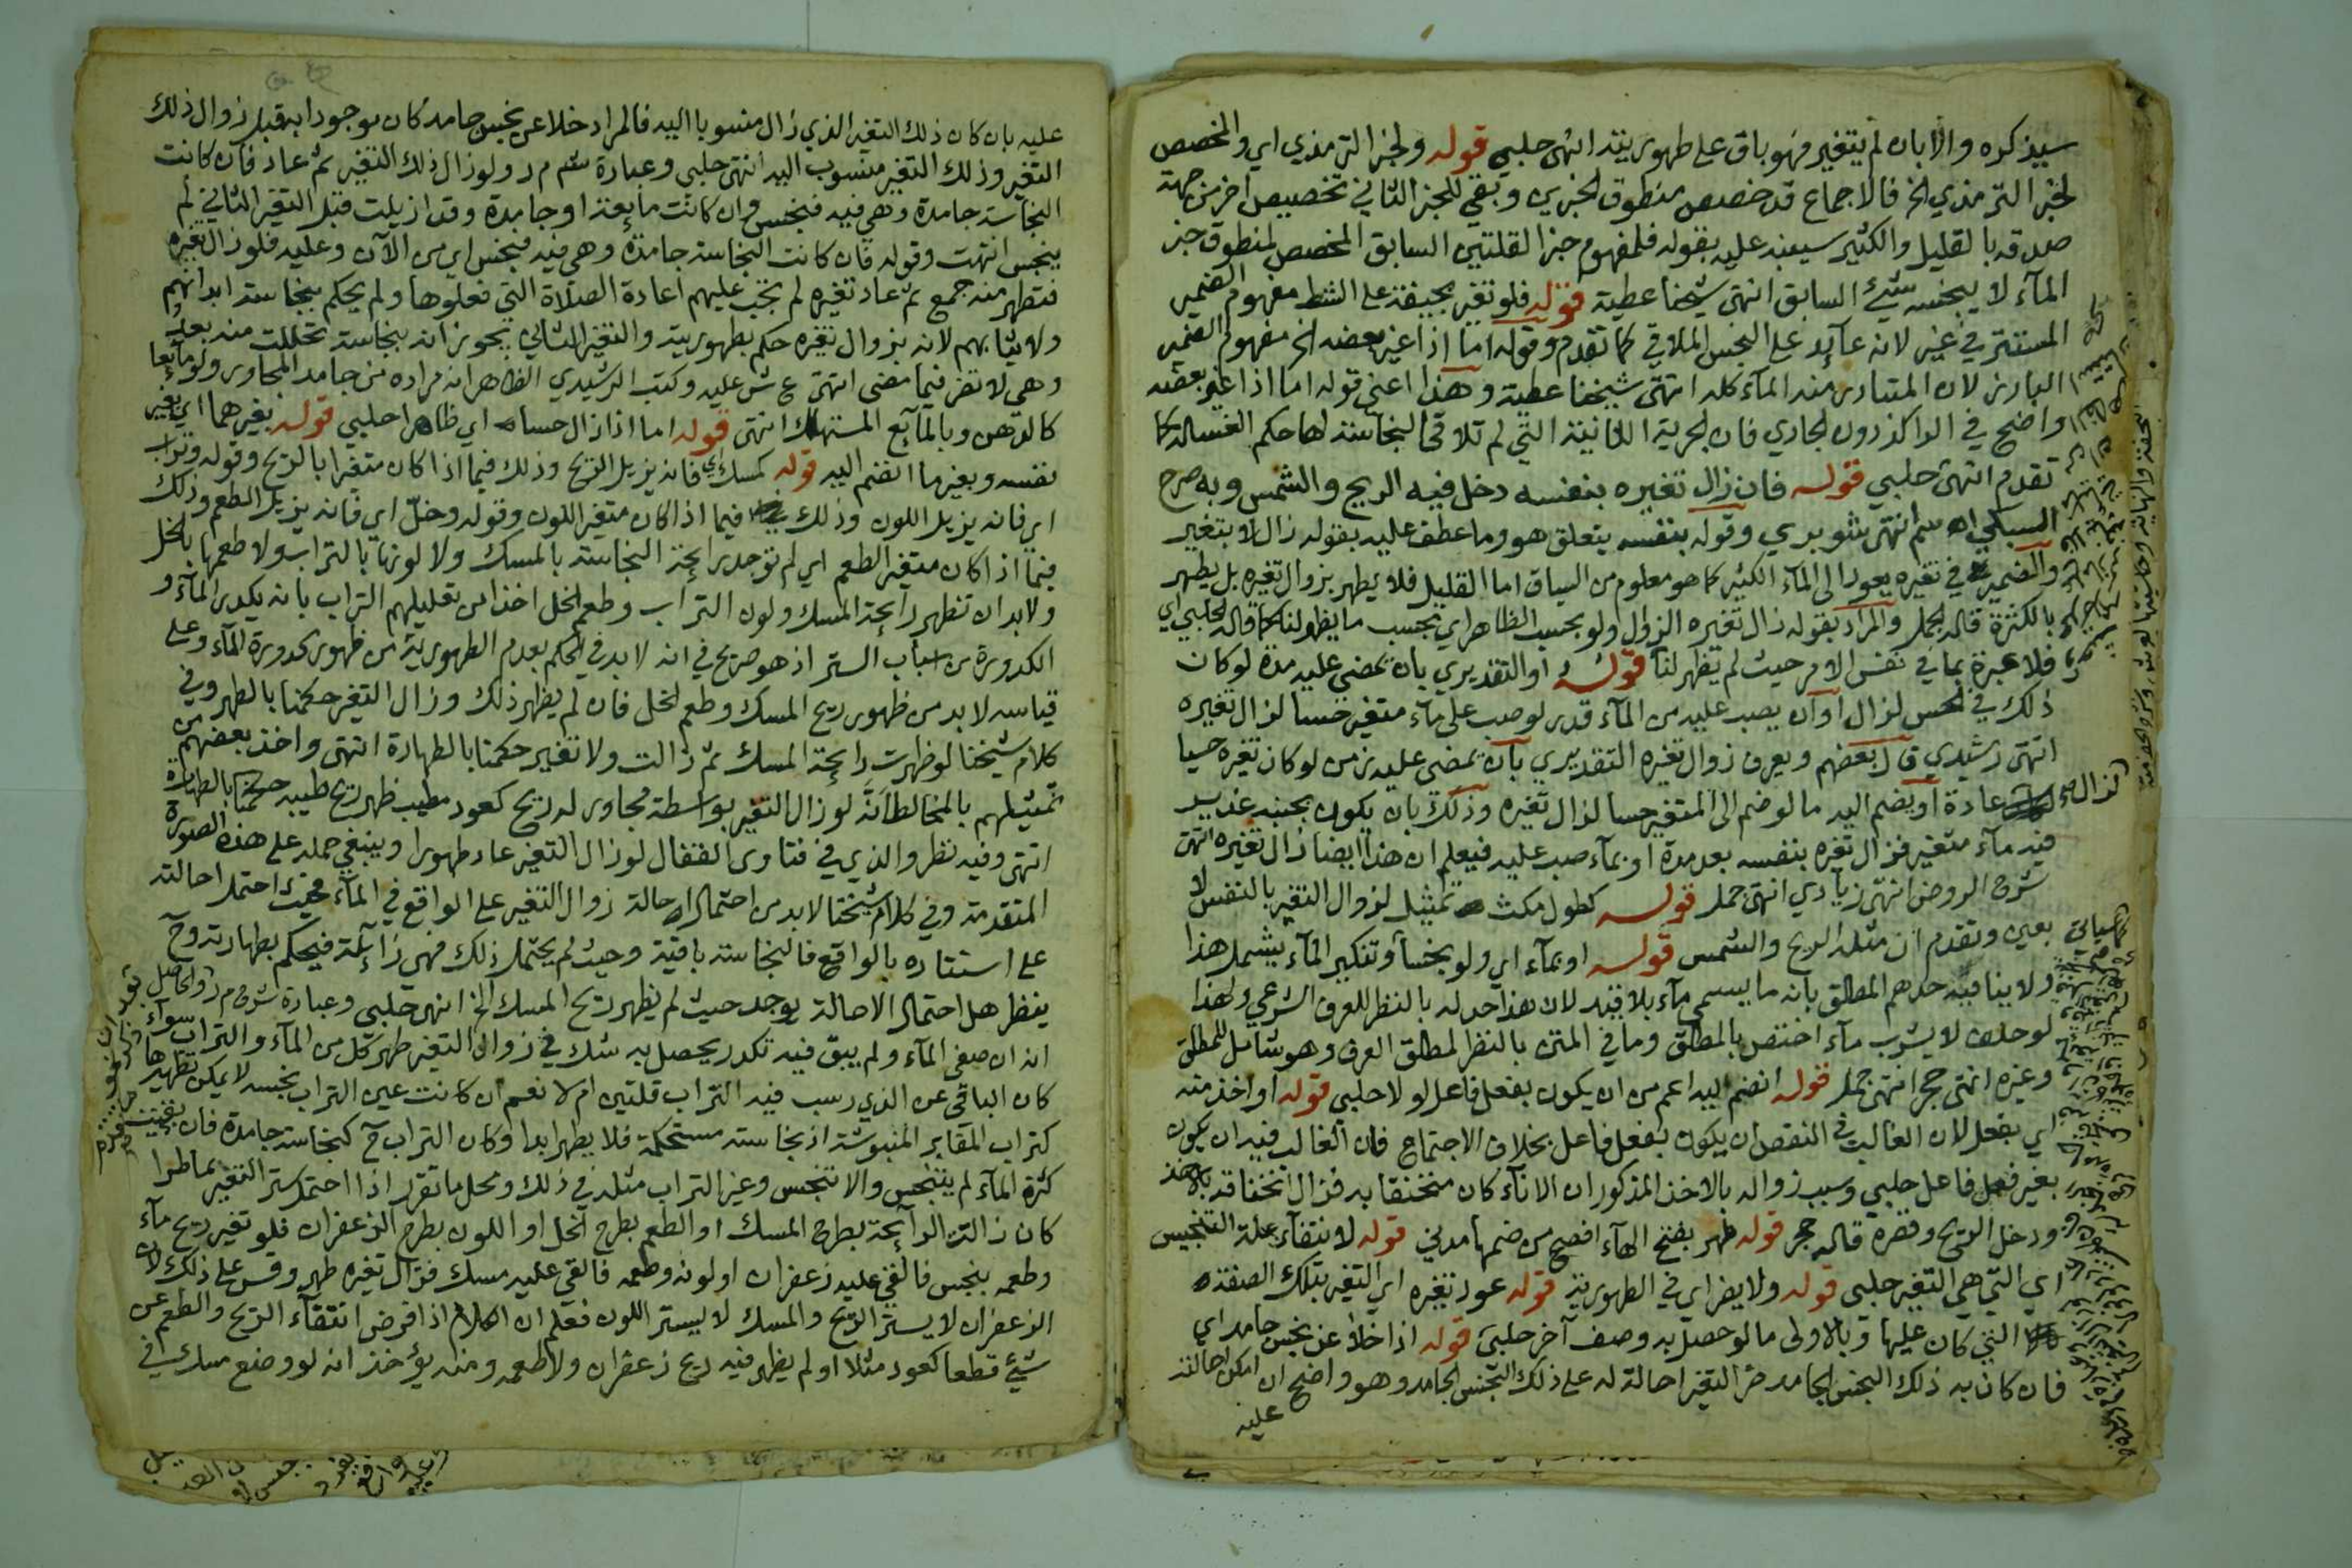 سيذكره والا بان لم يتغير فهو باق على طهوريته انتهى حلبي قوله ولخبر الترمذي اي والمخصص
لخبر الترمذي الخ فالاجماع قد خصص منطوق الخبرين وبقي للخبر الثاني تخصيص اخر من جهة
صدقه بالقليل والكثير سينبه عليه بقوله فلمفهوم خبر القلتين السابق المخصص لمنطوق خبر
المآء لا ينجسه شيئ السابق انتهى شيخنا عطية قوله فلو تغير بجيفة على الشط مفهوم الضمير
المستتر في غير لانه عآيد على النجس الملاقي كما تقدم وقوله اما اذا غير بعضه الخ مفهوم الضمير
البارز لان المتبادر منه المآء كله انتهى شيخنا عطية وهذا اعني قوله اما اذا غير بعضه
واضح في الراكد دون الجاري فان الجرية الثانية التي لم تلاقي النجاسة لها حكم الغسالة كما
تقدم انتهى حلبي قوله فان زال تغيره بنفسه دخل فيه الريح والشمس وبه صرح
السبكي اه سم انتهى شوبري وقوله بنفسه يتعلق هو وما عطف عليه بقوله زال لا بتغير
والضمير في تغيره يعود الى المآء الكثير كما هو معلوم من السياق اما القليل فلا يطهر بزوال تغيره بل يطهر
بالكثرة قاله الجمل والمراد بقوله زال تغيره الزوال ولو بحسب الظاهر اي بحسب ما يظهر لنا كما قاله الحلبي اي
فلا عبرة بما في نفس الامر حيث لم يظهر لنا قوله او التقديري بان يمضي عليه مدة لو كان
ذلك في الحس لزال او ان يصب عليه من المآء قدر لو صب على مآء متغير حسا لزال تغيره
انتهى رشيدي قال بعضهم ويعرف زوال تغيره التقديري بان يمضي عليه زمن لو كان تغيره حسيا
لزال عادة او يضم اليه ما لو ضم الى المتغير حسا لزال تغيره وذلك بان يكون بجنبه غدير
فيه مآء متغير فزال تغيره بنفسه بعد مدة او بمآء صب عليه فيعلم ان هذا ايضا زال تغيره انتهى
شرح الروض انتهى زيادي انتهى جمل قوله كطول مكث تمثيل لزوال التغير بالنفس لا
بعين وتقدم ان مثله الريح والشمس قوله او بمآء اي ولو نجسا وتنكير المآء يشمل هذا
ولا ينافيه حدهم المطلق بانه ما يسمى مآء بلا قيد لان هذا حد له بالنظر للعرف الشرعي ولهذا
لو حلف لا يشرب مآء اختص بالمطلق وما في المتن بالنظر لمطلق العرف وهو شامل للمطلق
وغيره انتهى حجر انتهى جمل قوله انضم اليه اعم من ان يكون بفعل فاعل او لا حلبي قوله او اخذ منه
اي بفعل لان الغالب في النقص ان يكون بفعل فاعل بخلاف الاجتماع فان الغالب فيه ان يكون
بغير فعل فاعل حلبي وسبب زواله بالاخذ المذكور ان الانآء كان منخنقا به فزال انخناقه بالاخذ
ودخل الريح وقصره قاله حجر قوله طهر بفتح الهآء افصح من ضمها مدني قوله لانتفآء علة التنجيس
اي التي هي التغير حلبي قوله ولا يضر اي في الطهورية قوله عود تغيره اي التغير بتلك الصفة
التي كان عليها وبالاولى ما لو حصل به وصف آخر حلبي قوله اذا خلا عن نجس جامد اي
فان كان به ذلك النجس الجامد ضر التغير احالة له على ذلك النجس الجامد وهو واضح ان امكن احالته
عليه
عليه بان كان ذلك التغير الذي زال منسوبا اليه فالمراد خلا عن نجس جامد كان موجودا به قبل زوال ذلك
التغير وذلك التغير منسوب اليه انتهى حلبي وعبارة شم م ر ولو زال ذلك التغير ثم عاد فان كانت
النجاسة جامدة وهي فيه فنجس وان كانت مايعة او جامدة وقد ازيلت قبل التغير الثاني لم
ينجس انتهت وقوله فان كانت النجاسة جامدة وهي فيه فنجس اي من الآن وعليه فلو زال تغيره
فتطهر منه جمع ثم عاد تغيره لم تجب عليهم اعادة الصلاة التي فعلوها ولم يحكم بنجاسة ابدانهم
ولا ثيابهم لانه بزوال تغيره حكم بطهوريته والتغير الثاني يجوز انه بنجاسة تحللت منه بعد
وهي لا تضر فيما مضى انتهى ع ش عليه وكتب الرشيدي الظاهر ان مراده من جامد المجاور ولو مآيعا
كالدهن وبالمآيع المستهلك انتهى قوله اما اذا زال حسا اي ظاهرا حلبي قوله بغيرهما اي بغير
نفسه وبغير ما انضم اليه قوله كمسك اي فانه يزيل الريح وذلك فيما اذا كان متغيرا بالريح وقوله وتراب
اي فانه يزيل اللون وذلك فيما اذا كان متغير اللون وقوله وخل اي فانه يزيل الطعم وذلك
فيما اذا كان متغير الطعم اي لم توجد رايحة النجاسة بالمسك ولا لونها بالتراب ولا طعمها بالخل
ولا بد ان تظهر رايحة المسك ولون التراب وطعم الخل اخذا من تعليلهم التراب بانه يكدر المآء و
الكدورة من اسباب الستر اذ هو صريح في انه لا بد في الحكم بعدم الطهورية من ظهور كدورة المآء وعلى
قياسه لا بد من ظهور ريح المسك وطعم الخل فان لم يظهر ذلك وزال التغير حكمنا بالطهر وفي
كلام شيخنا لو ظهرت رايحة المسك ثم زالت ولا تغير حكمنا بالطهارة انتهى واخذ بعضهم من
تمثيلهم بالمخالط انه لو زال التغير بواسطة مجاور له ريح كعود مطيب ظهر ريح طيبه حكمنا بالطهارة
انتهى وفيه نظر والذي في فتاوى القفال لو زال التغير عاد طهورا وينبغي حمله على هذه الصورة
المتقدمة وفي كلام شيخنا لا بد من احتمال احالة زوال التغير على الواقع في المآء فحيث احتمل احالته
على استتاره بالواقع فالنجاسة باقية وحيث لم يحتمل ذلك فهي زآيلة فيحكم بطهارته وح
ينظر هل احتمال الاحالة يوجد حيث لم يظهر ريح المسك الخ انتهى حلبي وعبارة شرح م ر والحاصل
انه ان صفى المآء ولم يبق فيه تكدر يحصل به شك في زوال التغير طهر كل من المآء والتراب سوآء
كان الباقي عن الذي رسب فيه التراب قلتين ام لا نعم ان كانت عين التراب نجسه لا يمكن تطهيرها
كتراب المقابر المنبوشة اذ نجاسته مستحكمة فلا يطهر ابدا وكان التراب ح كنجاسة جامدة فان بقيت
كثرة المآء لم يتنجس والا تنجس وغير التراب مثله في ذلك ومحل ما تقرر اذا احتمل ستر التغير بما طرا
كان زالت الرآيحة بطرح المسك او الطعم بطرح الخل او اللون بطرح الزعفران فلو تغير ريح مآء
وطعمه بنجس فالقي عليه زعفران او لونه وطعمه فالقي عليه مسك فزال تغيره طهر وقس على ذلك لان
الزعفران لا يستر الريح والمسك لا يستر اللون فعلم ان الكلام اذا فرض انتفآء الريح والطعم عن
شيئ قطعا كعود مثلا او لم يظهر فيه ريح زعفران ولا طعمه ومنه يؤخذ انه لو وضع مسك في